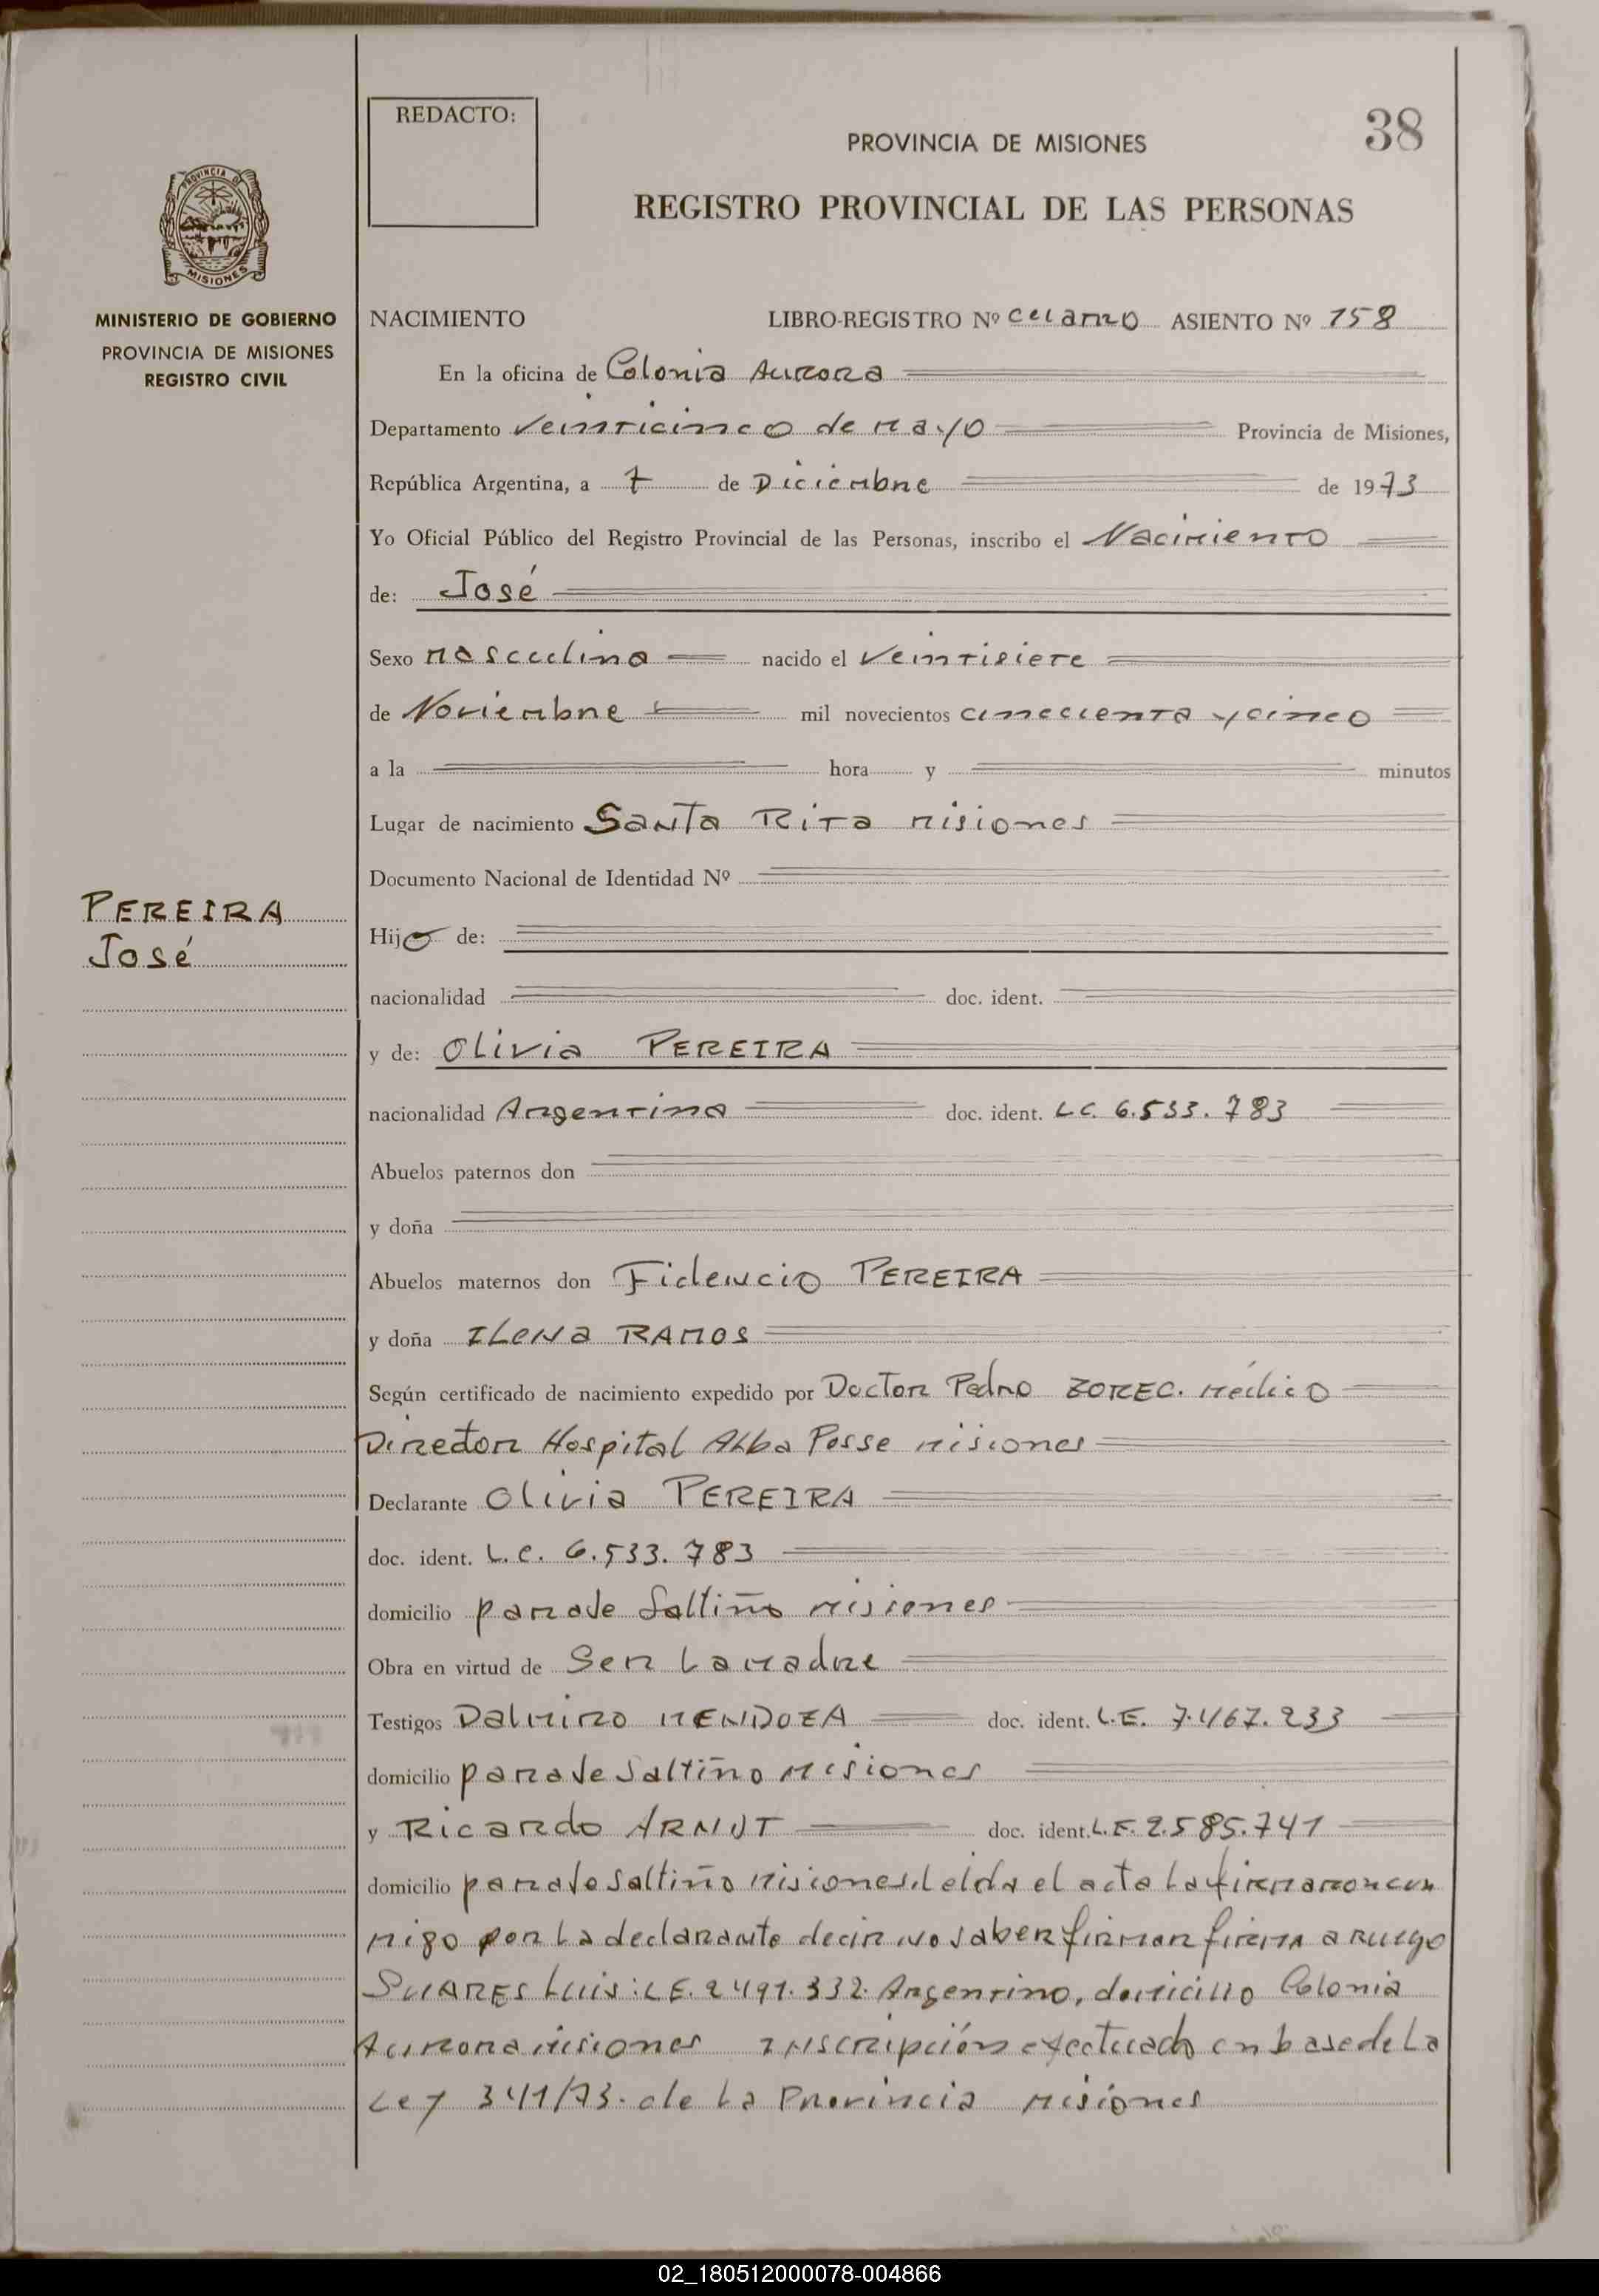 REDACTO:
38
PROVINCIA DE MISIONES
REGISTRO PROVINCIAL DE LAS PERSONAS
PROVINCIA D
MISIONES
MINISTERIO DE GOBIERNO
PROVINCIA DE MISIONES
REGISTRO CIVIL
NACIMIENTO LIBRO-REGISTRO Nº cuarzo ASIENTO Nº 158
En la oficina de Colonia Aurora
Departamento Veinticinco de Mayo Provincia de Misiones,
República Argentina, a 7 de Diciembre de 1973
Yo Oficial Público del Registro Provincial de las Personas, inscribo el Nacimiento
de: José
Sexo Masculino nacido el Veintisiete
de Noviembre mil novecientos cincuenta y cinco
a la hora y minutos
Lugar de nacimiento Santa Rita Misiones
Documento Nacional de Identidad Nº
PEREIRA
José
Hijo de:
nacionalidad doc. ident.
y de: Olivia PEREIRA
nacionalidad Argentina doc. ident. L.C. 6.533.783
Abuelos paternos don
y doña
Abuelos maternos don Fidencio PEREIRA
y doña ILena RAMOS
Según certificado de nacimiento expedido por Doctor Pedro ZOREC. Médico
Director Hospital Alba Posse Misiones
Declarante Olivia PEREIRA
doc. ident. L.C. 6.533.783
domicilio paraje Saltiño Misiones
Obra en virtud de Ser La Madre
Testigos Dalmiro MENDOZA doc. ident. L.E. 7.467.233
domicilio paraje Saltiño Misiones
y Ricardo ARNDT doc. ident. L.E. 2.585.741
domicilio paraje Saltiño Misiones. Leida el acta La firmaron con
migo por La declarante decir no saber firmar firma a ruego
SUARES Luis: L.E. 2491.332. Argentino, domicilio Colonia
Aurora Misiones inscripción efectuado en base de La
Ley 341/73. de La Provincia Misiones
02_180512000078-004866